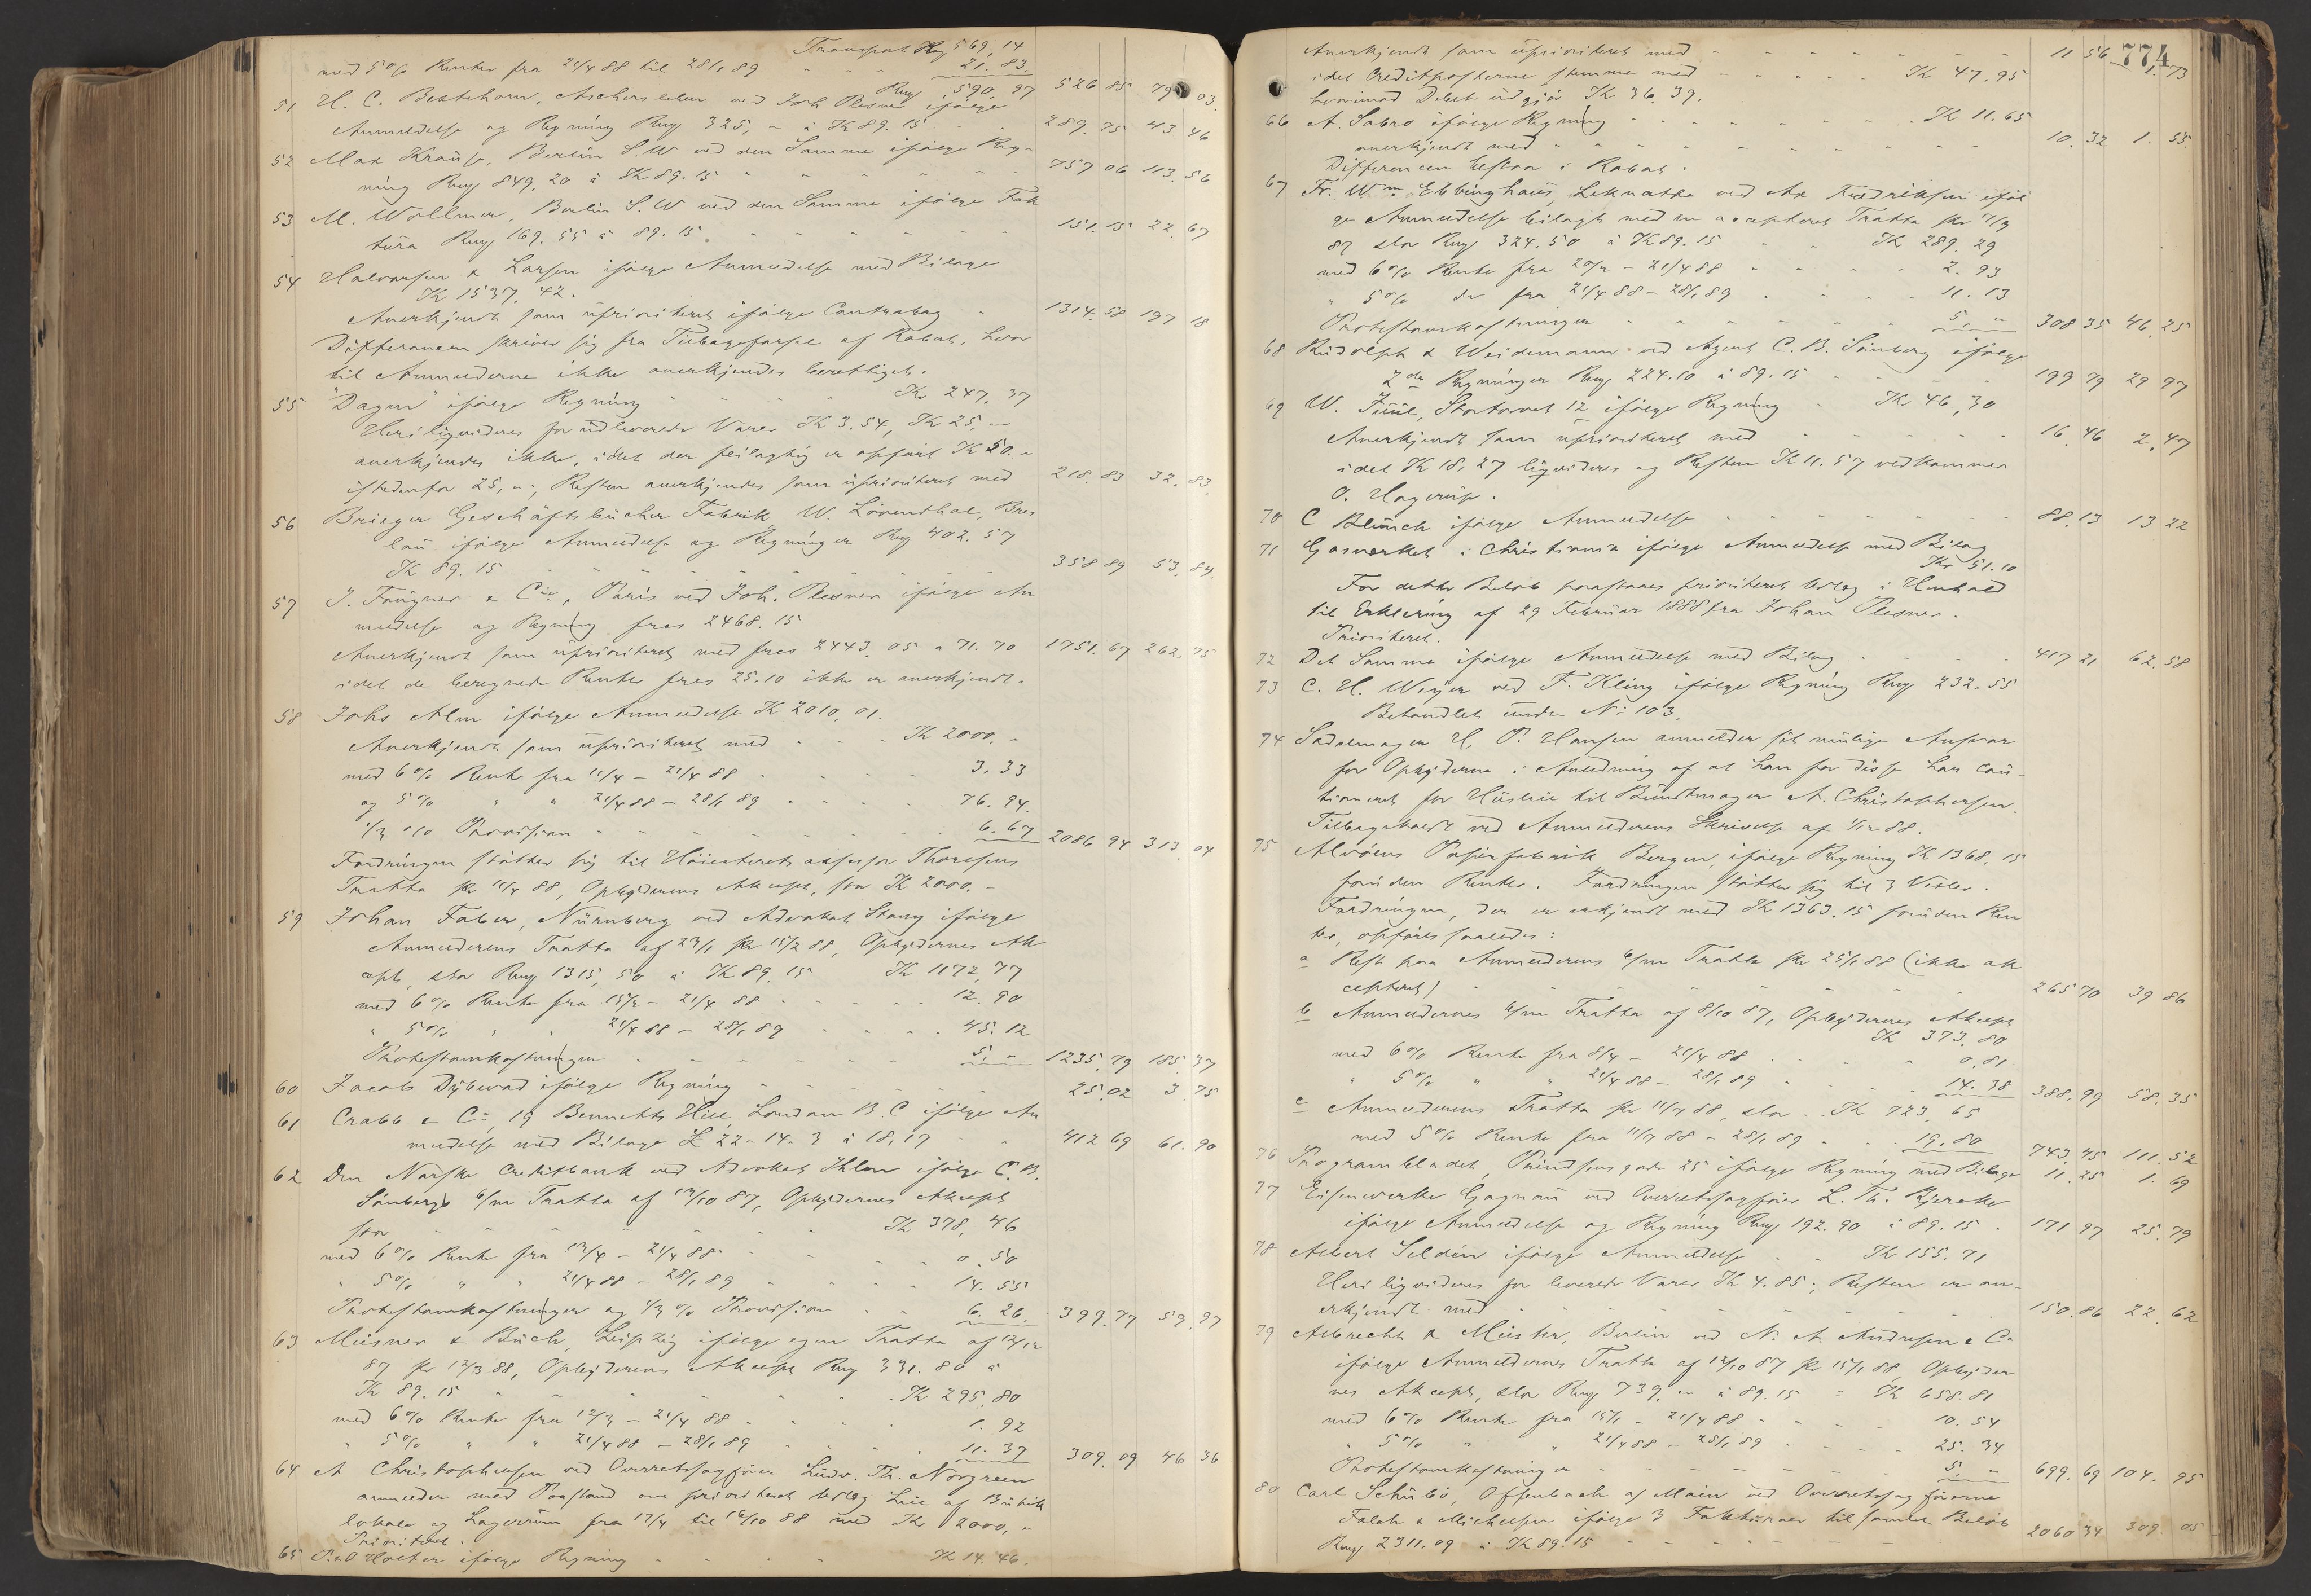 Transport Rmg 569,14
med 5% Renter fra 21/4 88 til 28/1 89 - - - 21.83.
Rmg 590.97 526 85 79 03.
51 H. C. Bestehorn, Aschersleben ved Joh Plesner ifølge
Anmeldelse og Regning Rmg 325, - à Kr 89.15 - - 289.75 43 46
52 Max Krause, Berlin S.W ved den Samme ifølge Reg-
ning Rmg 849.20 à Kr 89.15 - - - - - 757 06 113.56
53 M. Wollmer, Berlin S.W ved den Samme ifølge Fak
tura Rmg 169.55 à 89.15. - - - - - - 151.15 22.67
54 Halvorsen & Larsen ifølge Anmeldelse med Bilage
Kr 1537.42.
Anerkjendt som uprioriteret ifølge Contrabog - 1314.58 197 18
Differancen skriver sig fra Tilbageførsel af Rabat, hvor
til Anmelderne ikke anerkjendes berettiget.
55 "Dagen" ifølge Regning - - - - - Kr 247.37
Heri ligvideres for udleverede Varer Kr 3.54, Kr 25, -
anerkjendes ikke, idet der feilagtig er opført Kr 50. -
istedenfor 25, -; Resten anerkjendes som uprioriteret med 218.83 32.83.
56 Brieger Geschäftsbücher Fabrik, W. Löwenthal, Bres
lau ifølge Anmeldelse og Regninger Rmg 402.57
Kr 89.15 - - - - - - - 358 89 53.84.
57 J. Faugner & Cie, Paris ved Joh. Plesner ifølge An
meldelse og Regning frcs 2468.15
Anerkjendt som uprioriteret med frcs 2443.05 à 71.70 1751.67 262.75
idet de beregnede Renter frcs 25.10 ikke er anerkjendt.
58 Johs Alm ifølge Anmeldelse Kr 2010.01.
Anerkjendt som uprioriteret med - - - Kr 2000. -
med 6% Rente fra 11/4 - 21/4 88 - - - - 3.33
og 5% " " 21/4 88 - 28/1 89 - - - - 76.94.
1/3 % Provision - - - - - - - 6.67 2086 94 313.04
Fordringen støtter sig til Høiesteretsassessor Thoresens
Tratta pr 11/4 88, Opbydernes Akcept, stor Kr 2000. -
59 Johan Faber, Nürnberg ved Advokat Stang ifølge
Anmelderens Tratta af 23/1 pr 15/2 88, Opbydernes Ak
cept, stor Rmg 1315,50 à Kr 89.15 Kr 1172,77
med 6% Rente fra 15/2 - 21/4 88 - - - - - 12.90
" 5% " " 21/4 88 - 28/1 89 - - - - 45.12
Protestomkostninger - - - - - - - 5. - 1235.79 185.37
60 Jacob Dybwad ifølge Regning - - - - - - 25.02 3.75
61 Crabb & Co, 19 Bennetts Hill, London B.C ifølge An
meldelse med Bilage £ 22-14-3 à 18,17 - - 412 69 61.90
62 Den Norske Creditbank ved Advokat Ihlen ifølge C.B.
Sönbergs 6/m Tratta af 13/10 87, Opbydernes Akcept
stor - - - - - - - Kr 378,46
med 6% Rente fra 13/4 - 21/4 88 - - - - 0.50
" 5% " " 21/4 88 - 28/1 89 - - - - 14.55
Protestomkostninger og 1/3 % Provision - - 6.26. 399.77 59.97
63 Meisner & Buch, Leipzig ifølge egen Tratta af 12/12
87 pr 12/3 88, Opbyderens Akcept Rmg 331.80 à
Kr 89.15 - - - - - - - Kr 295.80
med 6% Rente fra 12/3 - 21/4 88 - - - - 1.92
" 5% " " 21/4 88 - 28/1 89 - - - - 11.37 309.09 46 36
64 A Christophersen ved Overretssagfører Ludv. Th. Norgreen
anmelder med Paastand om prioriteret Udlæg Leie af Butik
lokale og Lagerrum fra 17/4 til 16/10 88 med Kr 2000, -
Prioriteret.
65 Holter ifølge Regning - - - - - Kr 14.46.
774
Anerkjendt som uprioriteret med - - - - - - - 11 56 1.73
idet Creditposterne stemme med - - - - - Kr 47.95
hvorimod Debet udgjør Kr 36.39.
66 A. Sabro ifølge Regning - - - - - - - Kr 11.65
anerkjendt med - - - - - - - - - 10.32 1.55.
Differencen bestaar i Rabat.
67 Fr. Wm Ebbinghaus, Letmathe ved Ax Fredriksen iføl
ge Anmeldelse bilagt med en accepteret Tratta pr 7/9
87 stor Rmg 324.50 à Kr 89.15 - - Kr 289.29
med 6% Rente fra 20/2 - 21/4 88 - - - - 2.93
" 5% do fra 21/4 88 - 28/1 89 - - - - 11.13
Protestomkostninger - - - - - - - 5. - 308 35 46.25
68 Rudolph & Weidemann ved Agent C.B. Sönberg ifølge
2de Regninger Rmg 224.10 à 89.15 - - - - 199 79 29 97
69 W. Juul, Stortorvet 12 ifølge Regning - Kr 46,30
Anerkjendt som uprioriteret med - - - - - - 16.46 2.47
idet Kr 18.27 ligvideres og Resten Kr 11.57 vedkommer
O. Hagerup.
70 C Blunck ifølge Anmeldelse - - - - - - - 88.13 13 22
71 Gasverket i Christiania ifølge Anmeldelse med Bilag
Kr 51.10
For dette Beløb paastaaes prioriteret Udlæg i Henhold
til Erklæring af 29 Februar 1888 fra Johan Plesner.
Prioriteret.
72 Det Samme ifølge Anmeldelse med Bilag - - - - - 417 21 62.58
73 C. H. Weyer ved F. Kling ifølge Regning Rmg 232.55
Behandlet under No 103.
74 Sadelmager H. P. Hansen anmelder sit mulige Ansvar
for Opbyderne i Anledning af at han for disse har cau-
tioneret for Husleie til Buntmager A. Christophersen.
Tilbagekaldt ved Anmelderens Skrivelse af 1/12 88.
75 Alvøens Papirfabrik, Bergen, ifølge Regning Kr 1368,15
foruden Renter. Fordringen støtter sig til 3 Vexler.
Fordringen, der er erkjendt med Kr 1363.15 foruden Ren
ter, opføres saaledes:
a Rest paa Anmelderens 6/m Tratta pr 25/1 88 (ikke ak
cepteret) - - - - - - - - 265 70 39 86
b Anmeldernes 6/m Tratta af 8/10 87, Opbydernes Akcept
Kr 373.80
med 6% Rente fra 8/4 - 21/4 88 - - - " 0.81
" 5% " " 21/4 88 - 28/1 89 - - - - 14.38 388.99 58.35
c Anmelderens Tratta pr 11/7 88, stor - - Kr 723,65
med 5% Rente fra 11/7 88 - 28/1 89 - - - 19.80 743.45 111.52
76 Programbladet, Prindsensgade 25 ifølge Regning med Bilage 11.25 1.69
77 Eisenwerke Gagnau ved Overretssagfører L. Th. Bjercke
ifølge Anmeldelse og Regning Rmg 192.90 à 89.15 - 171 97 25.79
78 Albert Seldén ifølge Anmeldelse - - Kr 155.71
Heri ligvideres for leverede Varer Kr 4.85; Resten er an-
erkjendt med - - - - - - - - - 150.86 22.62
79 Albrecht & Meister, Berlin ved N. A. Andresen & Co
ifølge Anmeldernes Tratta af 12/10 87 pr 15/1 88, Opbyder
nes Akcept, stor Rmg 739. - à 89.15 = Kr 658.81
med 6% Rente fra 15/1 - 21/4 88 - - - - 10.54
" 5% " " 21/4 88 - 28/1 89 - - - - 25.34
Protestomkostninger - - - - - - - 5. - 699.69 104.95
80 Carl Schübö, Offenbach a/ Main ved Overretssagførerne
Falch & Michelsen ifølge 3 Fakturaer til samlet Beløb
Rmg 2311.09 à Kr 89.15 - - - - - - 2060 34 309.05